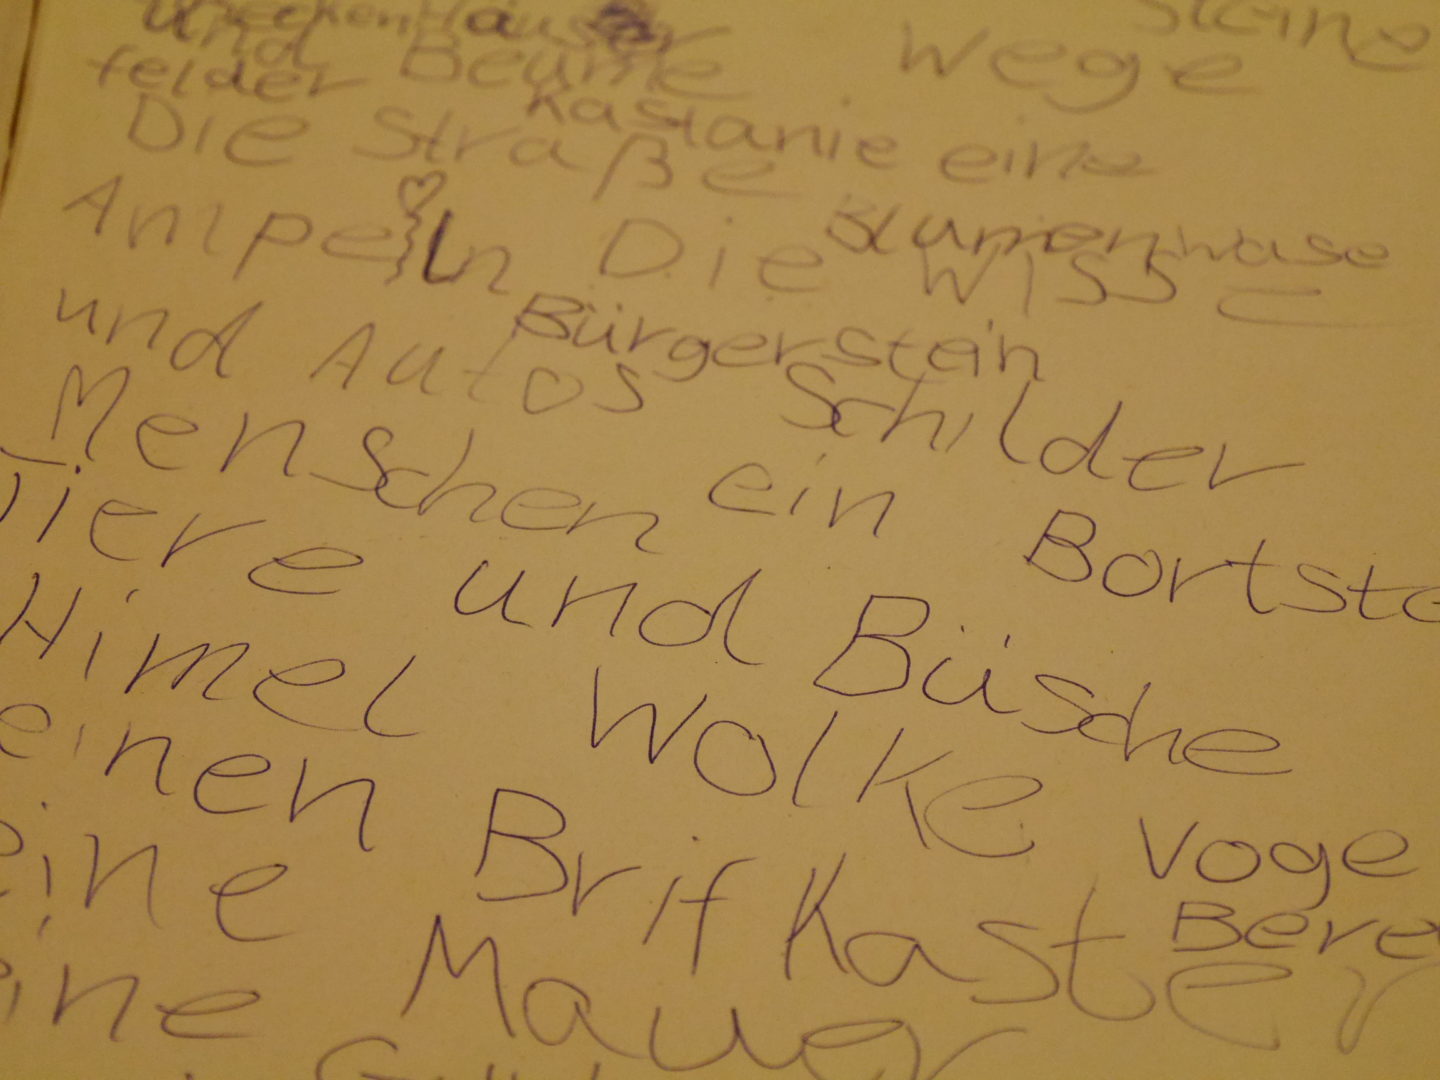 Steine
und Beume Wege
felder Kastanie eine
Die Straße
Ampeln Die Blumenwase
Wisse
und Autos Bürgerstein
Schilder
Menschen ein Bortste
Tiere und Büsche
Himel Wolke Voge
einen Brifkaster Bere
eine Mauer
ine